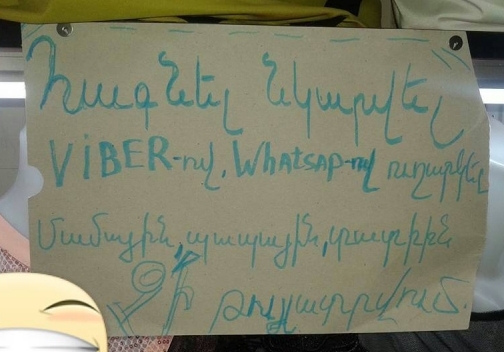 Հագնել նկարվել
VİBER-ով, WhatsAP-ով ուղարկել
Մամային, պապային, տատիկին
Չի թույլատրվում.